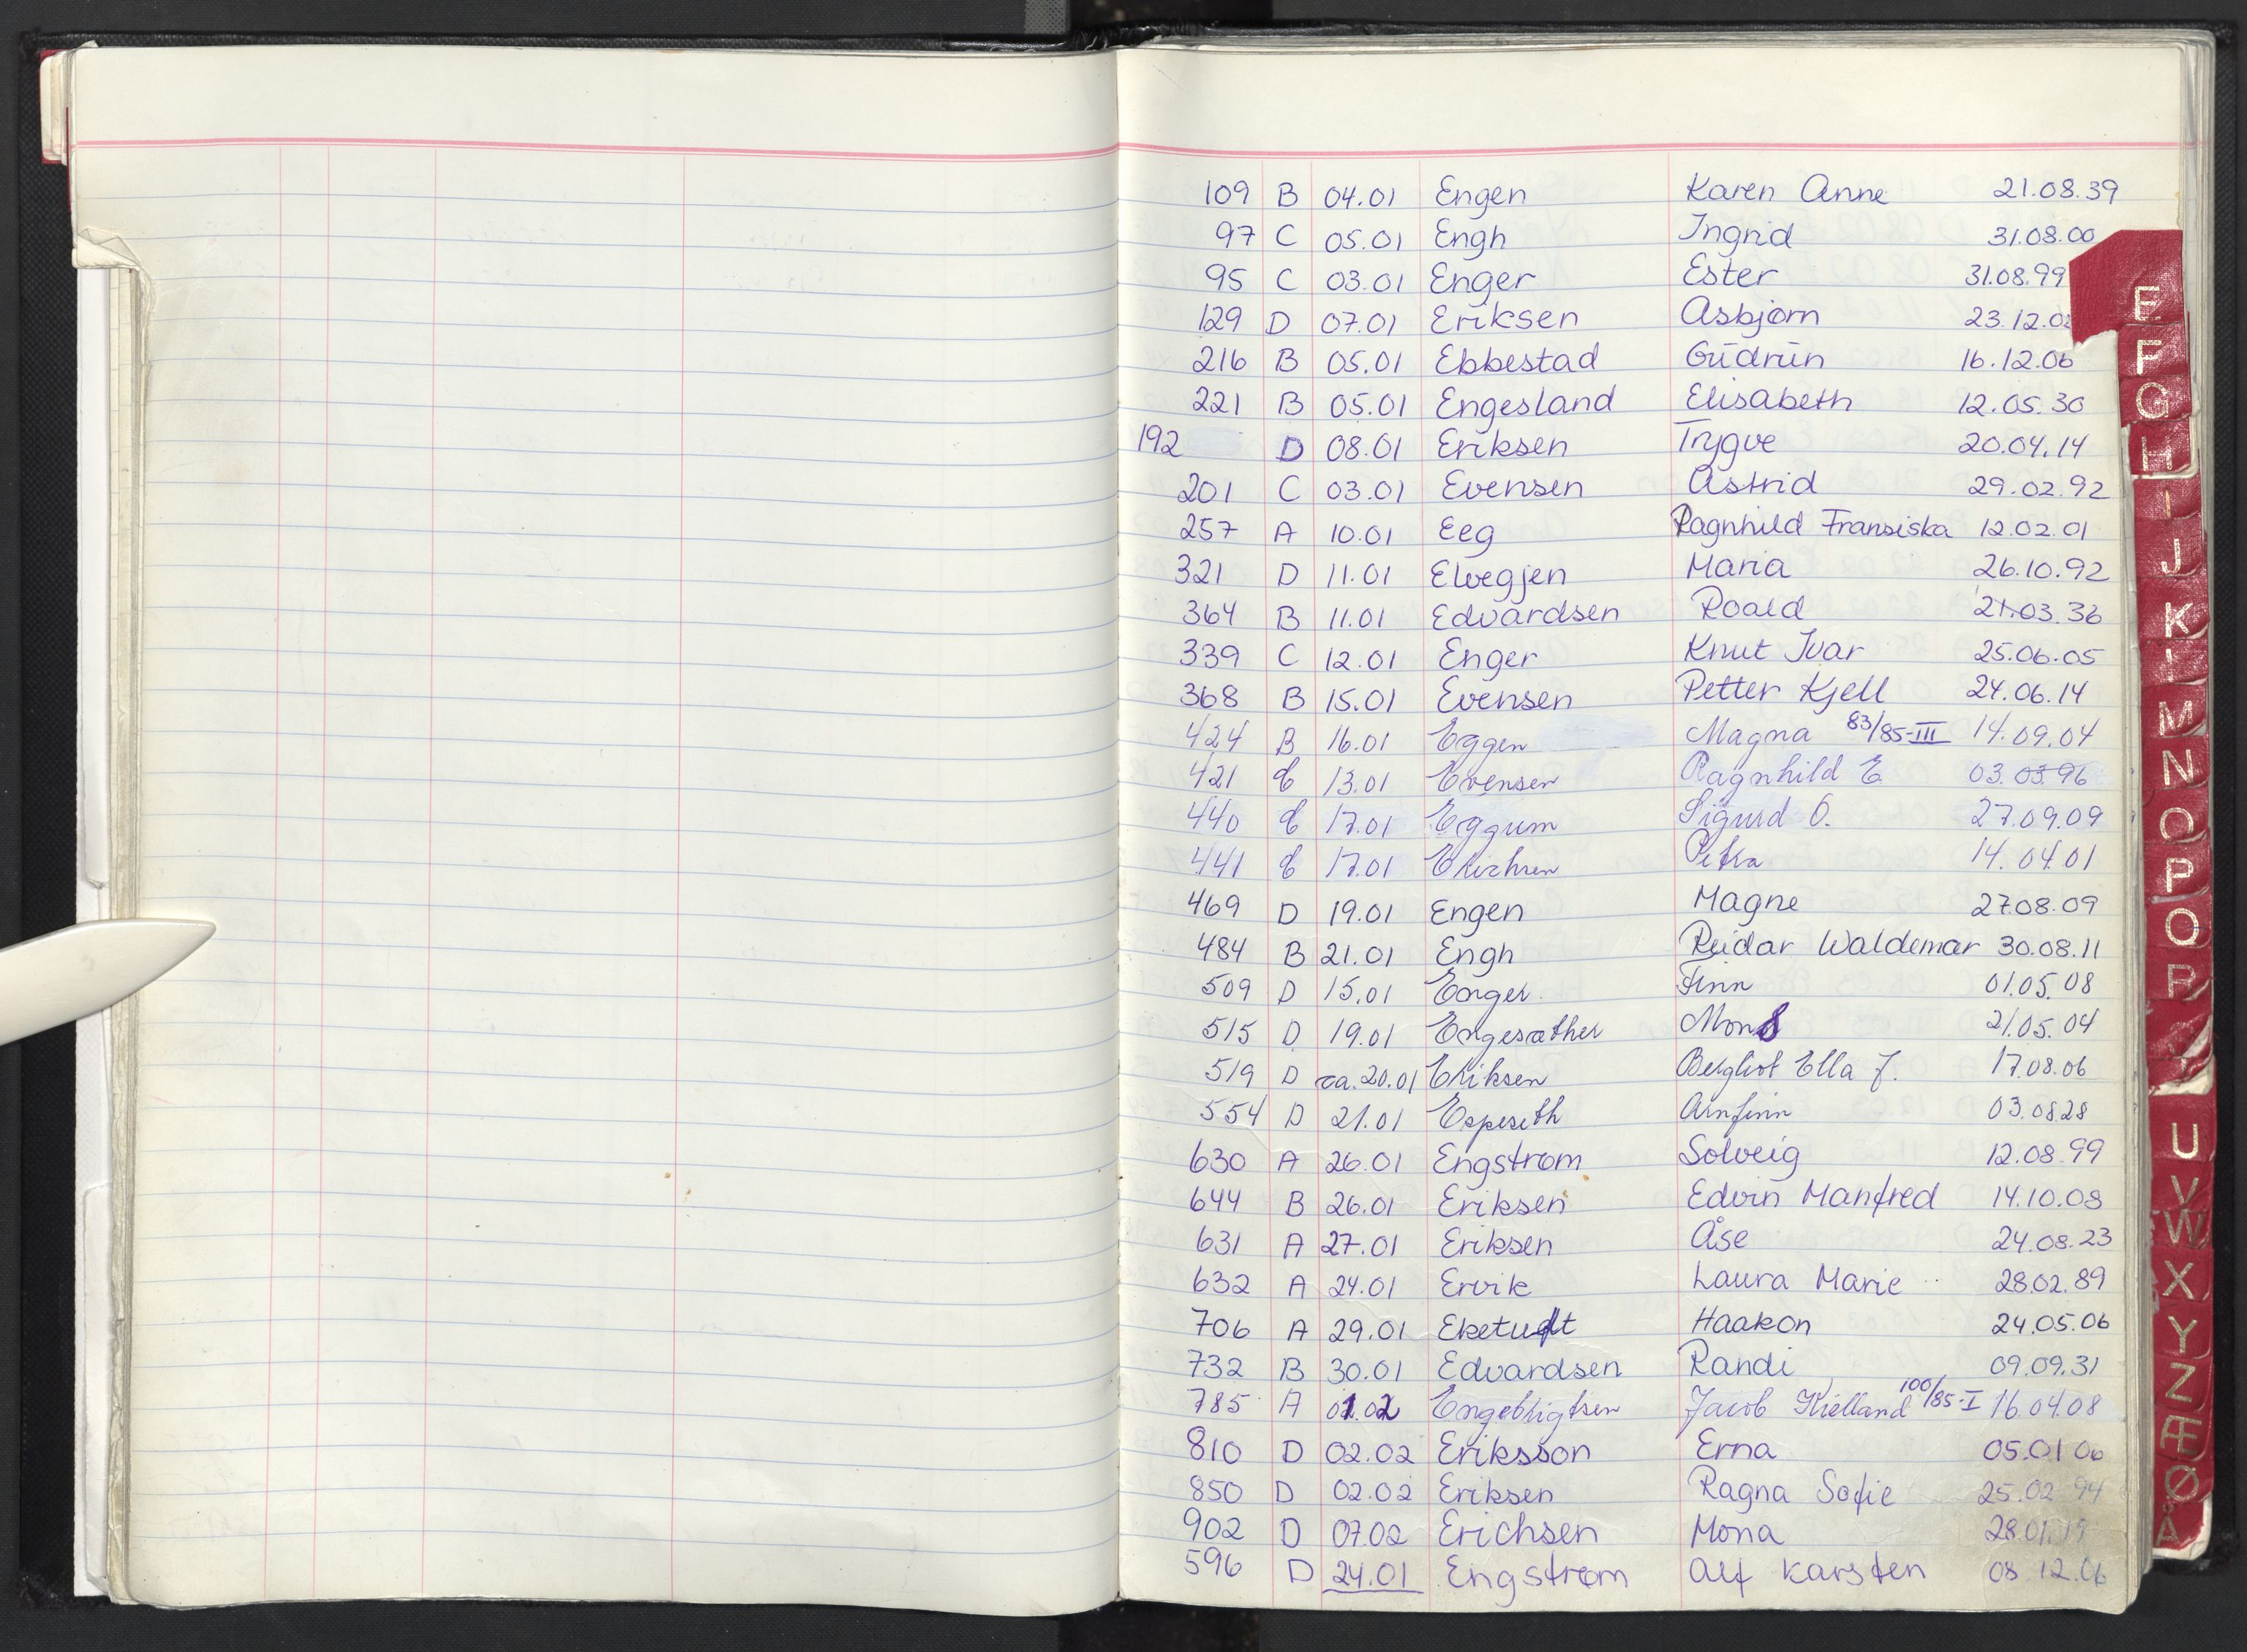 109 B 04.01 Engen Karen Anne 21.08.39
97 C 05.01 Engh Ingrid 31.08.00
95 C 03.01 Enger Ester 31.08.99
129 D 07.01 Eriksen Asbjørn 23.12.02
216 B 05.01 Ebbestad Gudrun 16.12.06
221 B 05.01 Engesland Elisabeth 12.05.30
192 D 08.01 Eriksen Trygve 20.04.14
201 C 03.01 Evensen Astrid 29.02.92
257 A 10.01 Eeg Ragnhild Fransiska 12.02.01
321 D 11.01 Elvegjen Maria 26.10.92
364 B 11.01 Edvardsen Roald 21.03.36
339 C 12.01 Enger Knut Ivar 25.06.05
368 B 15.01 Evensen Petter Kjell 24.06.14
424 B 16.01 Eggen Magna 83/85-III 14.09.04
421 C 13.01 Evensen Ragnhild E 03.03.96
440 C 17.01 Eggum Sigurd O. 27.09.09
441 C 17.01 Erichsen Petra 14.04.01
469 D 19.01 Engen Magne 27.08.09
484 B 21.01 Engh Reidar Waldemar 30.08.11
509 D 15.01 Enger Finn 01.05.08
515 D 19.01 Engesæther Mons 21.05.04
519 D ca.20.01 Eriksen Bergliot Ella J. 17.08.06
554 D 21.01 Espeseth Arnfinn 03.08.28
630 A 26.01 Engstrøm Solveig 12.08.99
644 B 26.01 Eriksen Edvin Manfred 14.10.08
631 A 27.01 Eriksen Åse 24.08.23
632 A 24.01 Ervik Laura Marie 28.02.89
706 A 29.01 Eketuft Haakon 24.05.06
732 B 30.01 Edvardsen Randi 09.09.31
785 A 01.02 Engebrigtsen Jacob Kielland 100/85-I 16.04.08
810 D 02.02 Eriksson Erna 05.01.06
850 D 02.02 Eriksen Ragna Sofie 25.02.94
902 D 07.02 Erichsen Mona 28.01.19
596 D 24.01 Engstrøm Alf Karsten 08.12.06
E
F
G
H
I
J
K
L
M
N
O
P
Q
R
U
V
W
X
Y
Z
Æ
Ø
Å